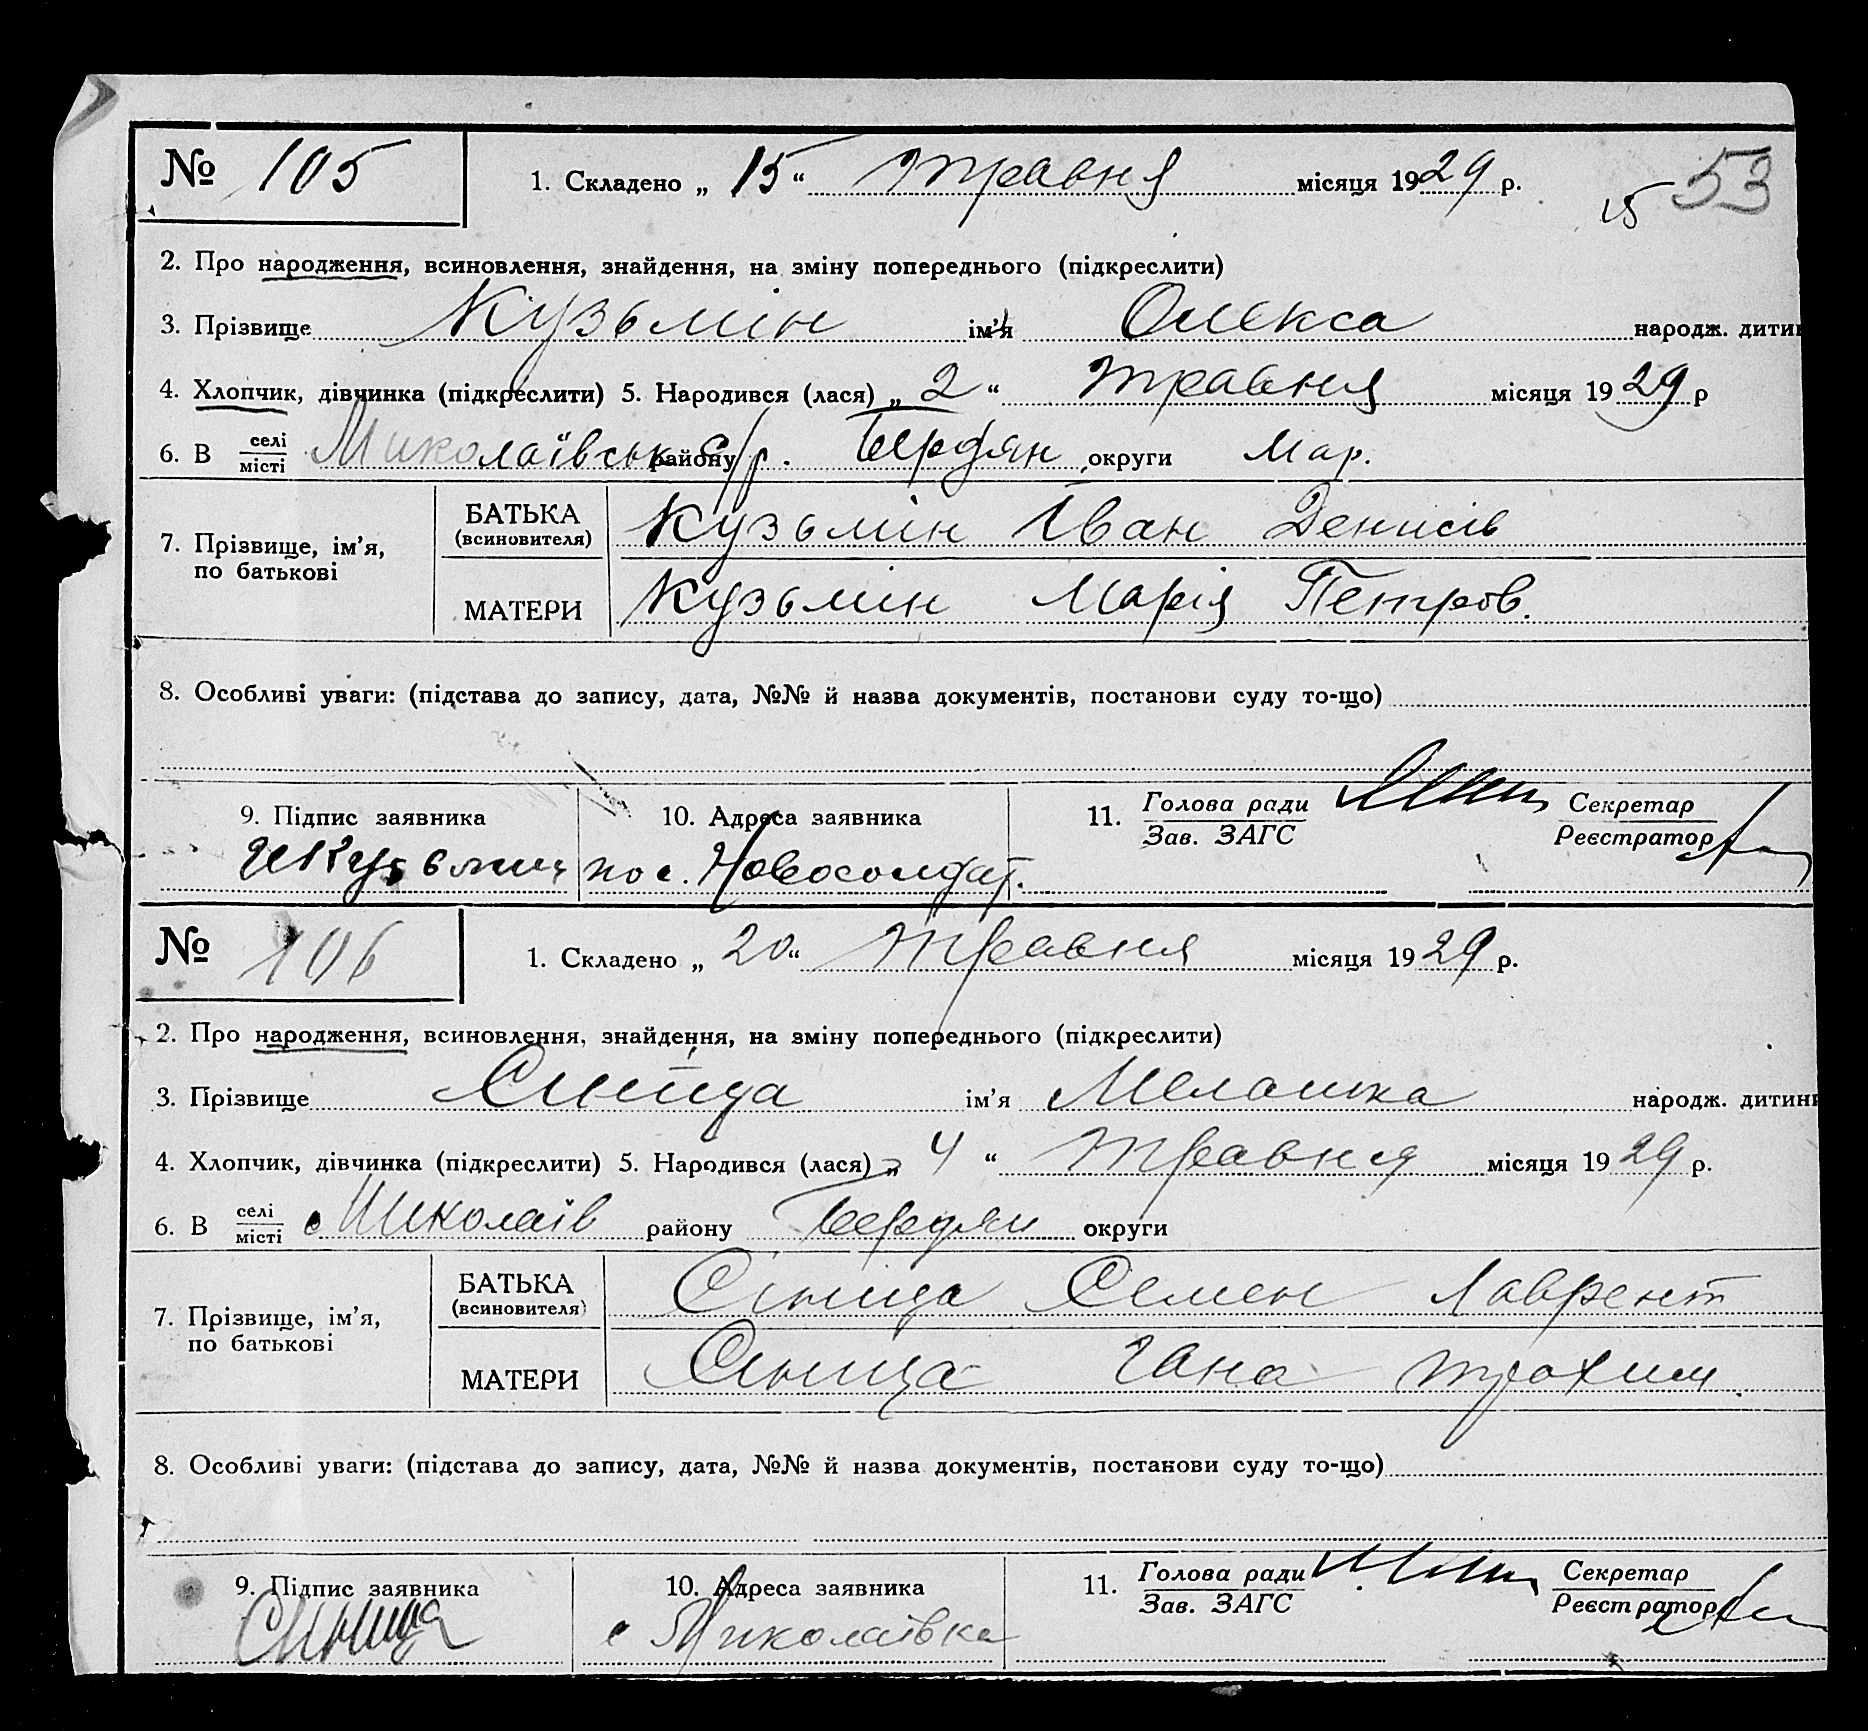 № 105 1. Складено „ 15 “ травня місяця 1929 р. 53
15
2. Про народження, всиновлення, знайдення, на зміну попереднього (підкреслити)
3. Прізвище Кузьмін ім’я Олекса народж. дитин
4. Хлопчик, дівчинка (підкреслити) 5. Народився (лася) „ 2 “ травня місяця 1929 р
6. В селі місті Миколаївськ с/р. району Бердян округи Мар.
7. Прізвище, ім’я, по батькові
БАТЬКА (всиновителя) Кузьмін Іван Денисів
МАТЕРИ Кузьмін Марія Петров.
8. Особливі уваги: (підстава до запису, дата, №№ й назва документів, постанови суду то-що)
9. Підпис заявника 10. Адреса заявника 11. Голова ради Зав. ЗАГС Секретар Реєстратор
ИКузьмин пос. Новосолдат.
№ 106 1. Складено „ 20 “ травня місяця 1929 р.
2. Про народження, всиновлення, знайдення, на зміну попереднього (підкреслити)
3. Прізвище Синіца ім’я Мелашка народж. дитини
4. Хлопчик, дівчинка (підкреслити) 5. Народився (лася) „ 4 “ травня місяця 1929 р.
6. В селі місті с Миколаїв району Бердян округи
7. Прізвище, ім’я, по батькові
БАТЬКА (всиновителя) Сініца Семен Лаврент
МАТЕРИ Сініца Гана Трохим.
8. Особливі уваги: (підстава до запису, дата, №№ й назва документів, постанови суду то-що)
9. Підпис заявника 10. Адреса заявника 11. Голова ради Зав. ЗАГС Секретар Реєстратор
Синица с Миколаївка